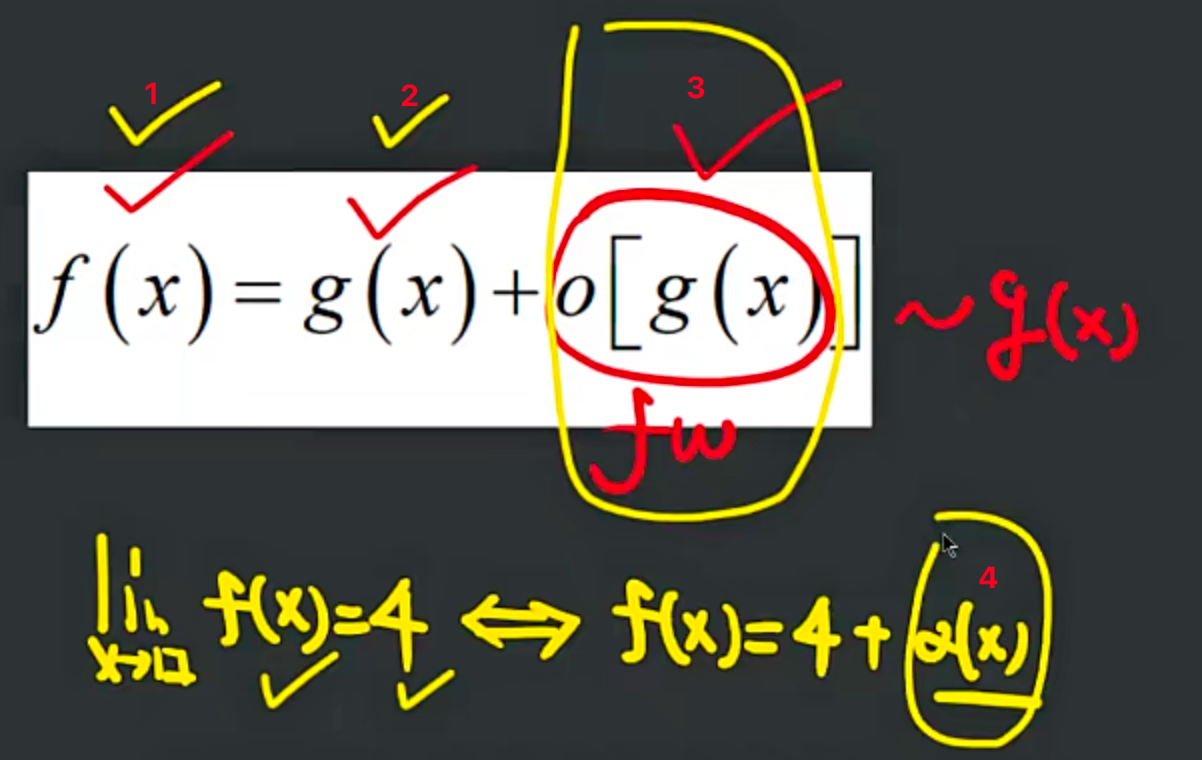 1 2 3
f(x) = g(x) + o[g(x)] ~ g(x)
4
lim f(x)=4 ⟺ f(x)=4+α(x)
x→□